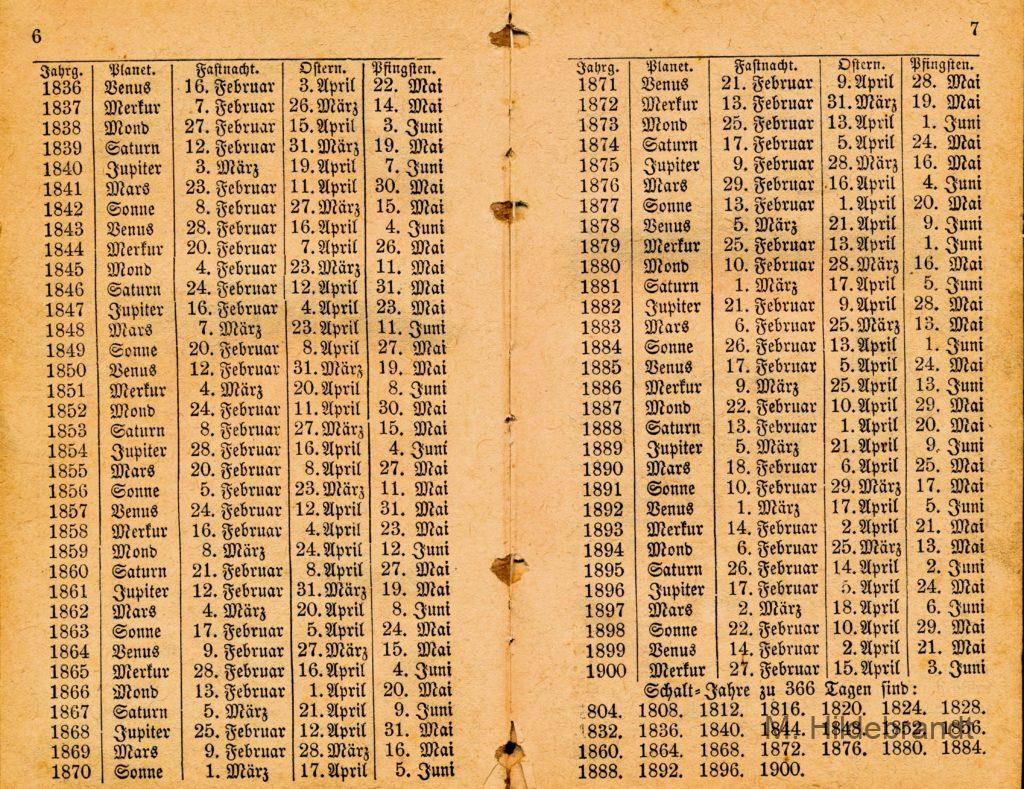 6
Jahrg. Planet. Fastnacht. Ostern. Pfingsten.
1836 Venus 16. Februar 3. April 22. Mai
1837 Merkur 7. Februar 26. März 14. Mai
1838 Mond 27. Februar 15. April 3. Juni
1839 Saturn 12. Februar 31. März 19. Mai
1840 Jupiter 3. März 19. April 7. Juni
1841 Mars 23. Februar 11. April 30. Mai
1842 Sonne 8. Februar 27. März 15. Mai
1843 Venus 28. Februar 16. April 4. Juni
1844 Merkur 20. Februar 7. April 26. Mai
1845 Mond 4. Februar 23. März 11. Mai
1846 Saturn 24. Februar 12. April 31. Mai
1847 Jupiter 16. Februar 4. April 23. Mai
1848 Mars 7. März 23. April 11. Juni
1849 Sonne 20. Februar 8. April 27. Mai
1850 Venus 12. Februar 31. März 19. Mai
1851 Merkur 4. März 20. April 8. Juni
1852 Mond 24. Februar 11. April 30. Mai
1853 Saturn 8. Februar 27. März 15. Mai
1854 Jupiter 28. Februar 16. April 4. Juni
1855 Mars 20. Februar 8. April 27. Mai
1856 Sonne 5. Februar 23. März 11. Mai
1857 Venus 24. Februar 12. April 31. Mai
1858 Merkur 16. Februar 4. April 23. Mai
1859 Mond 8. März 24. April 12. Juni
1860 Saturn 21. Februar 8. April 27. Mai
1861 Jupiter 12. Februar 31. März 19. Mai
1862 Mars 4. März 20. April 8. Juni
1863 Sonne 17. Februar 5. April 24. Mai
1864 Venus 9. Februar 27. März 15. Mai
1865 Merkur 28. Februar 16. April 4. Juni
1866 Mond 13. Februar 1. April 20. Mai
1867 Saturn 5. März 21. April 9. Juni
1868 Jupiter 25. Februar 12. April 31. Mai
1869 Mars 9. Februar 28. März 16. Mai
1870 Sonne 1. März 17. April 5. Juni
7
Jahrg. Planet. Fastnacht. Ostern. Pfingsten.
1871 Venus 21. Februar 9. April 28. Mai
1872 Merkur 13. Februar 31. März 19. Mai
1873 Mond 25. Februar 13. April 1. Juni
1874 Saturn 17. Februar 5. April 24. Mai
1875 Jupiter 9. Februar 28. März 16. Mai
1876 Mars 29. Februar 16. April 4. Juni
1877 Sonne 13. Februar 1. April 20. Mai
1878 Venus 5. März 21. April 9. Juni
1879 Merkur 25. Februar 13. April 1. Juni
1880 Mond 10. Februar 28. März 16. Mai
1881 Saturn 1. März 17. April 5. Juni
1882 Jupiter 21. Februar 9. April 28. Mai
1883 Mars 6. Februar 25. März 13. Mai
1884 Sonne 26. Februar 13. April 1. Juni
1885 Venus 17. Februar 5. April 24. Mai
1886 Merkur 9. März 25. April 13. Juni
1887 Mond 22. Februar 10. April 29. Mai
1888 Saturn 13. Februar 1. April 20. Mai
1889 Jupiter 5. März 21. April 9. Juni
1890 Mars 18. Februar 6. April 25. Mai
1891 Sonne 10. Februar 29. März 17. Mai
1892 Venus 1. März 17. April 5. Juni
1893 Merkur 14. Februar 2. April 21. Mai
1894 Mond 6. Februar 25. März 13. Mai
1895 Saturn 26. Februar 14. April 2. Juni
1896 Jupiter 17. Februar 5. April 24. Mai
1897 Mars 2. März 18. April 6. Juni
1898 Sonne 22. Februar 10. April 29. Mai
1899 Venus 14. Februar 2. April 21. Mai
1900 Merkur 27. Februar 15. April 3. Juni
Schalt-Jahre zu 366 Tagen sind:
804. 1808. 1812. 1816. 1820. 1824. 1828.
1832. 1836. 1840. 1844. 1848. 1852. 1856.
M. Hildebrandt
1860. 1864. 1868. 1872. 1876. 1880. 1884.
1888. 1892. 1896. 1900.